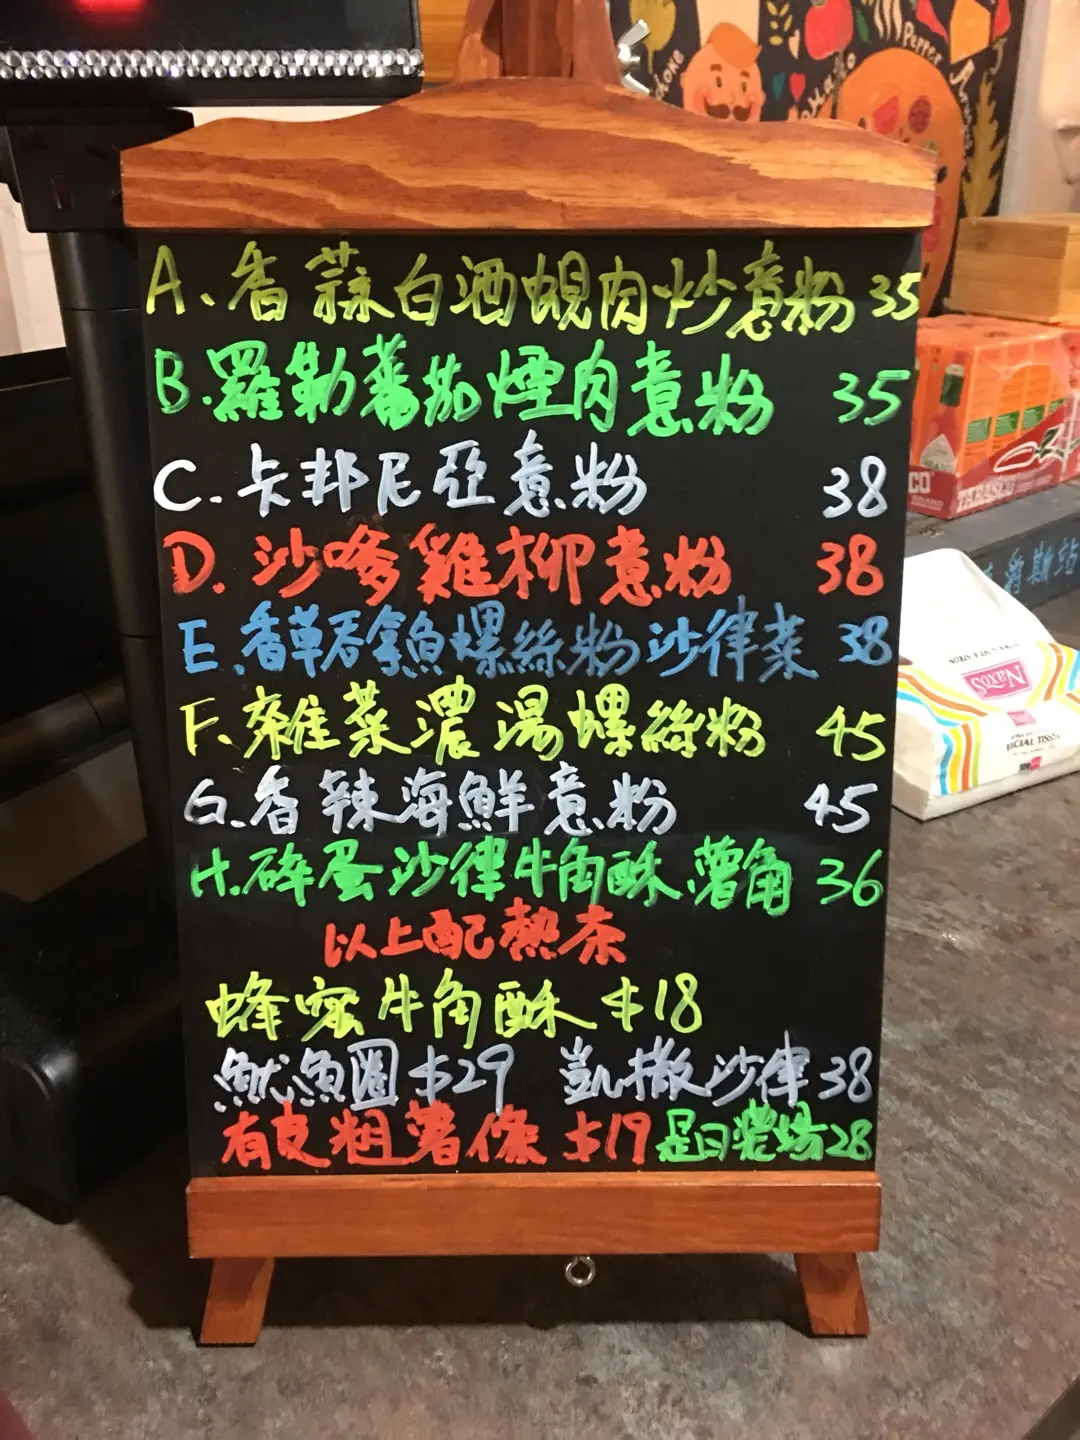 A.香蒜白酒蜆肉炒意粉 35
B.羅勒蕃茄煙肉意粉 35
C.卡邦尼亞意粉 38
D.沙嗲雞柳意粉 38
E.香草吞拿魚螺絲粉沙律菜 38
F.雜菜濃湯螺絲粉 45
G.香辣海鮮意粉 45
H.碎蛋沙律牛角酥薯角 36
以上配熱茶
蜂蜜牛角酥 $18
魷魚圈 $29 凱撒沙律 38
有皮粗薯條 $19 是日濃湯28
Pepper
TABASCO
Naxos
FACIAL TISSU